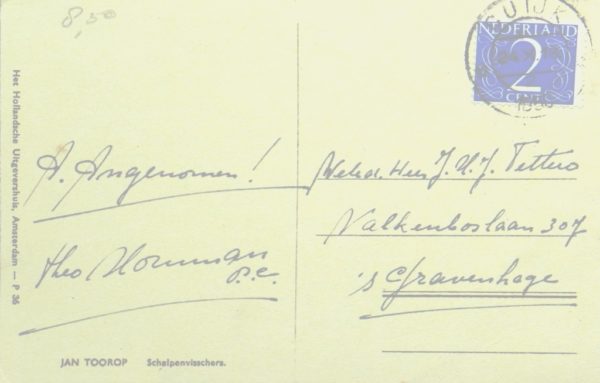 8,50
CUIJK
NEDERLAND
2
CENT
1950
A. Angenomen!
Theo
p.c.
Weled. Heer J. H. J. Tettero
Valkenboslaan 307
's Gravenhage
Het Hollandsche Uitgevershuis, Amsterdam — P 36
JAN TOOROP Schelpenvisschers.